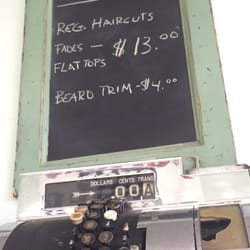 REG. HAIRCUTS
FADES — $13.00
FLAT TOPS
BEARD TRIM - $4.00
DOLLARS CENTS TRANS
00A